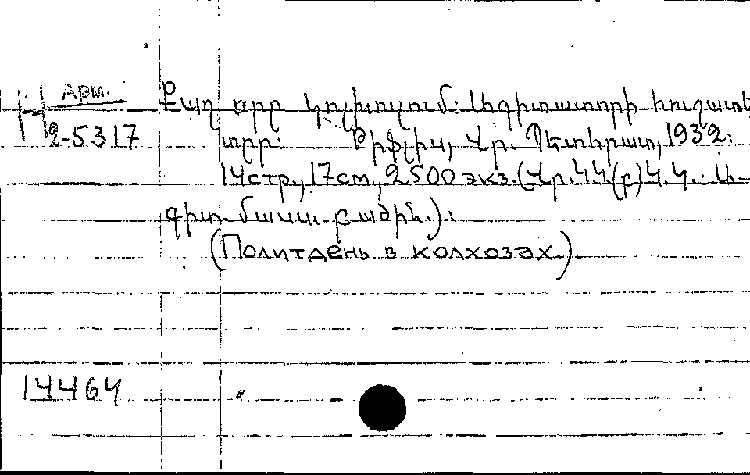 Арм.
Քաղ օրը կոլխոզում: Ագիտատորի հուշատե
2-5317 տրը: Թիֆլիս, Վր. Պետհրատ, 1932.
14стр., 17см, 2500 экз. (Վր. ԿԿ(բ)Կ Կ. Կ. Ա-
գիտ մասս. բաժին.):
(Политдень в колхозах)
14464